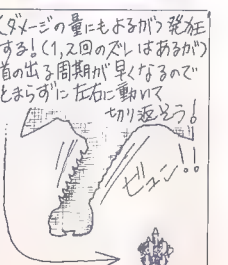 (ダメージの量にもよるがう発狂
する!(1,2回のズレはあるがう
首の出る周期が早くなるので
とまらずに左右に動いて
切り返そう!
ビュン!!